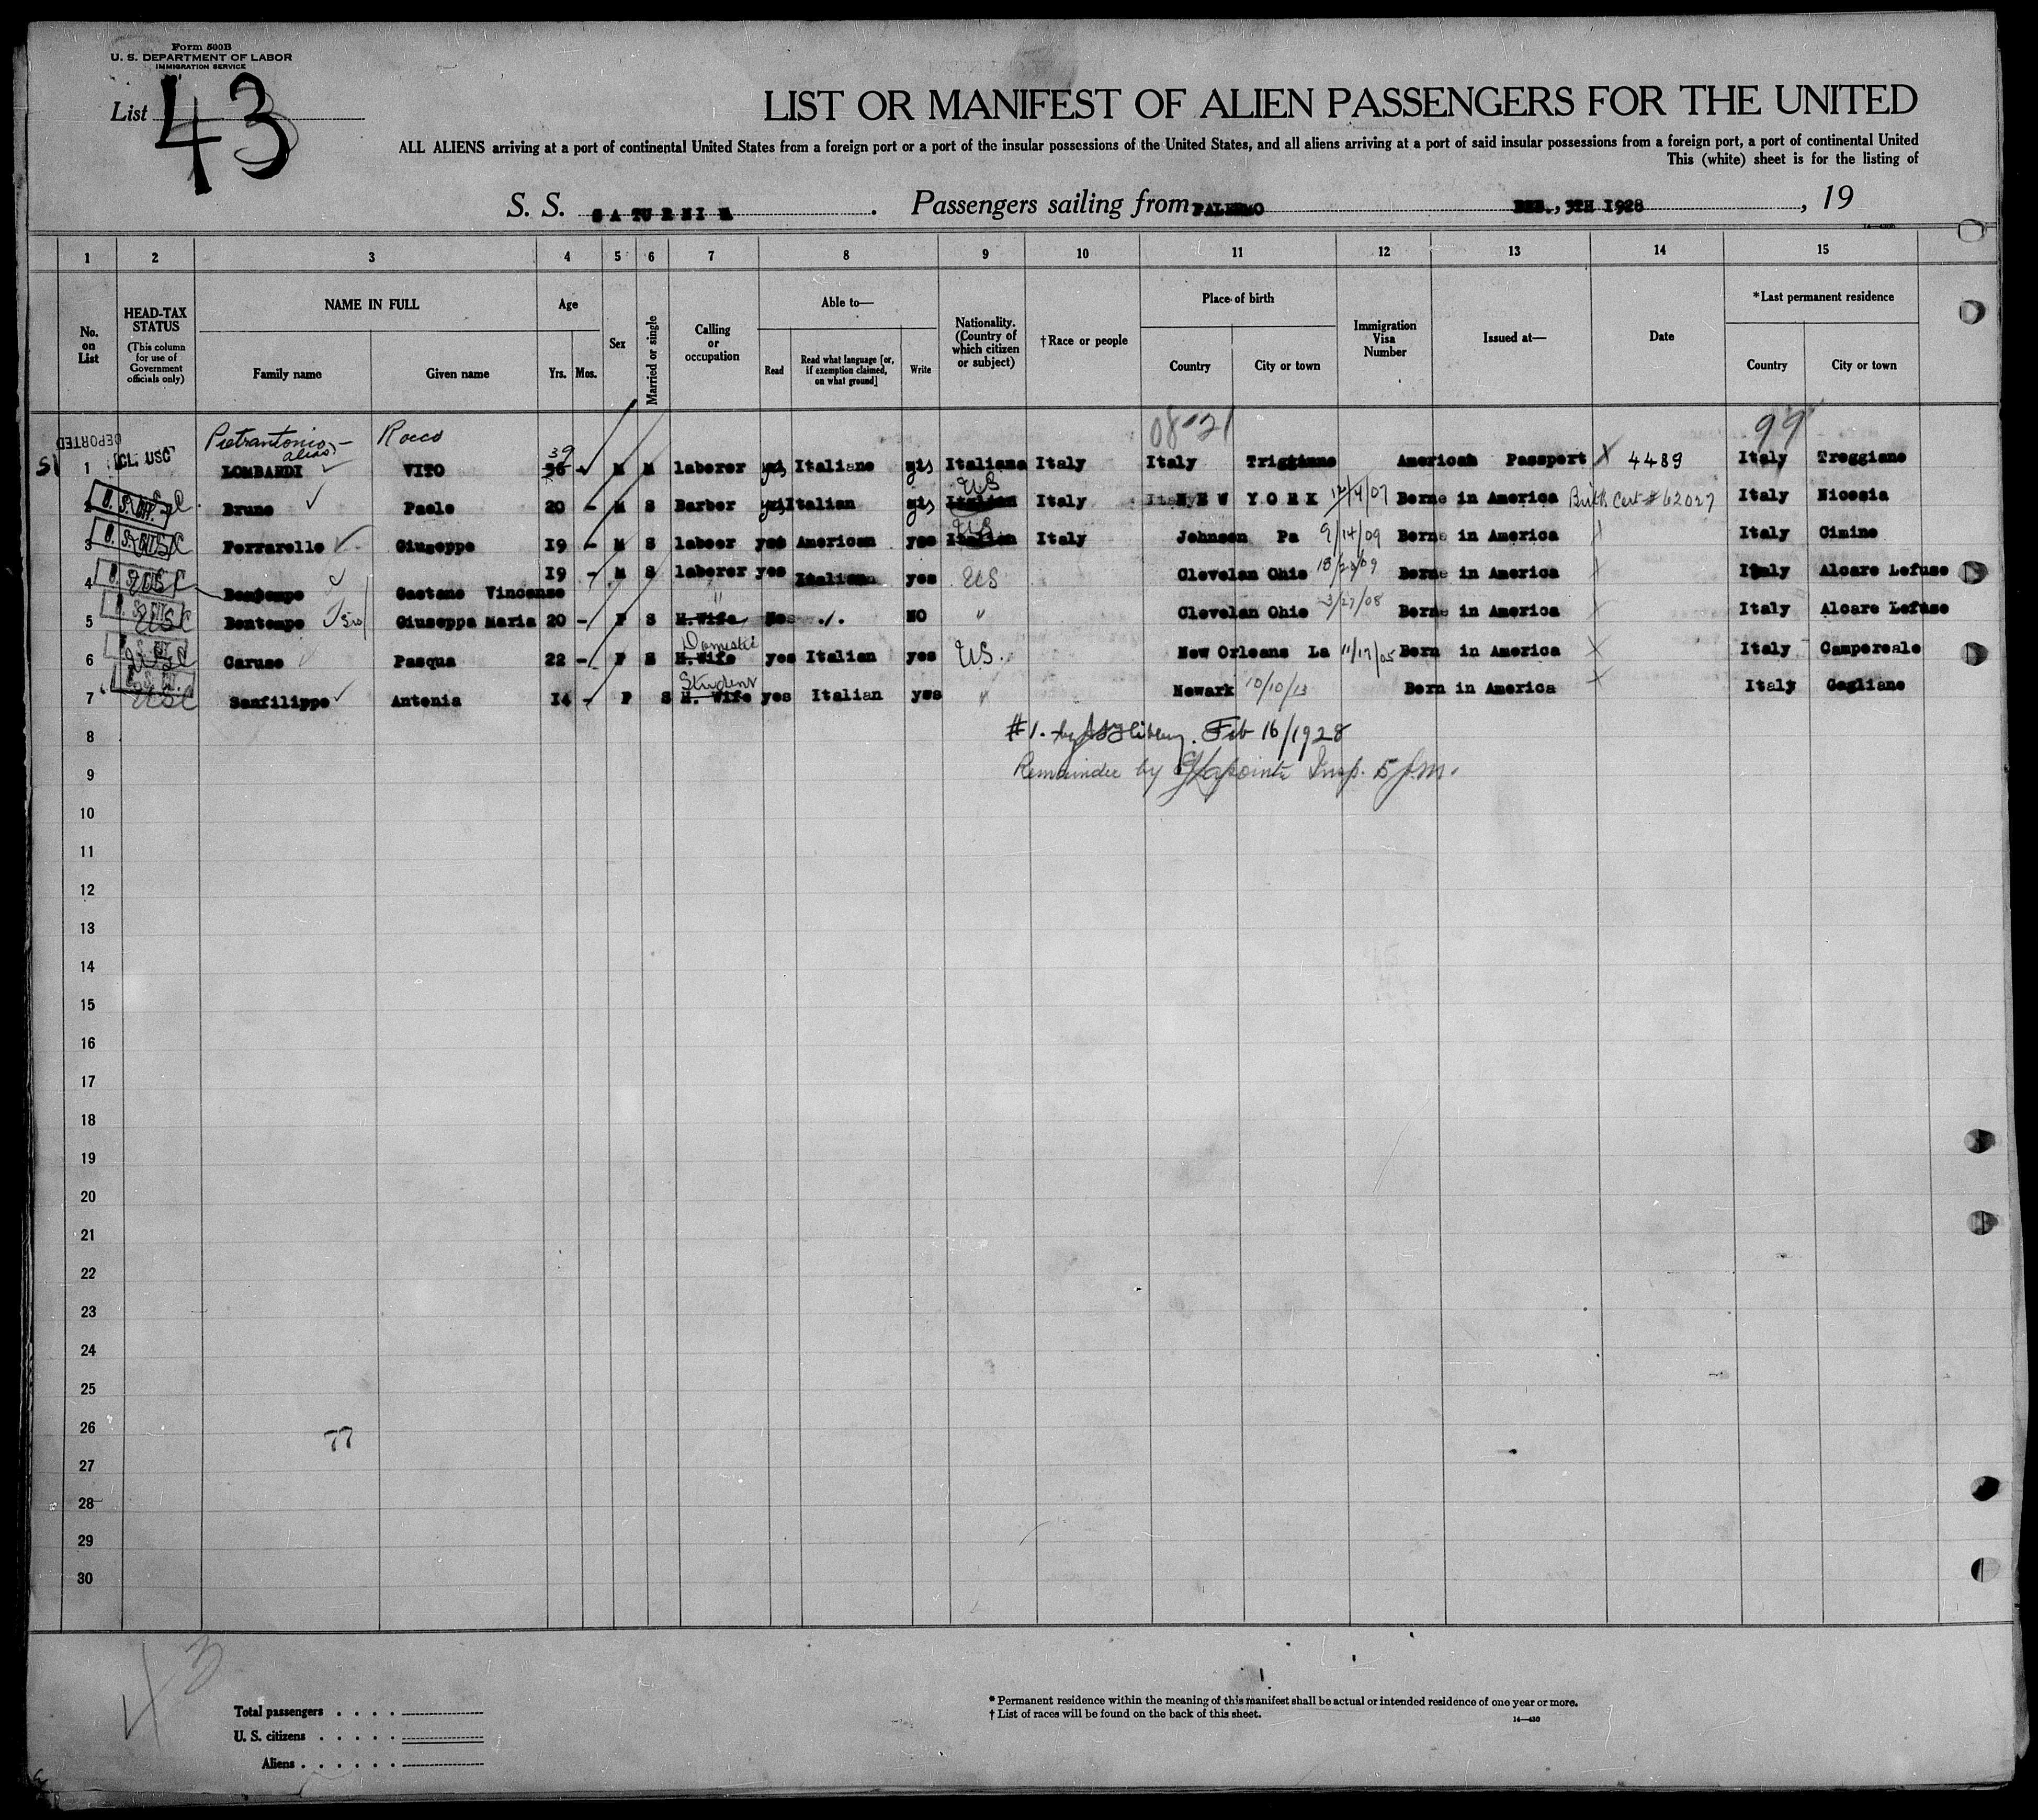 Form 500B
U. S. DEPARTMENT OF LABOR
IMMIGRATION SERVICE
List 43
LIST OR MANIFEST OF ALIEN PASSENGERS FOR THE UNITED
ALL ALIENS arriving at a port of continental United States from a foreign port or a part of the insular possessions of the United States, and all aliens arriving at a port of said insular possessions from a foreign port, a port of continental United
This (white) sheet is for the listing of
S. S. SATURNIA. Passengers sailing from PALERMO , 3TH 1928, 19
1 2 3 4 5 6 7 8 9 10 11 12 13 14 15
No. on List
HEAD-TAX STATUS
(This column for use of Government officials only)
NAME IN FULL
Family name
Given name
Age
Yrs. Mos.
Sex
Married or single
Calling or occupation
Able to—
Read
Read what language [or, if exemption claimed, on what ground]
Write
Nationality. (Country of which citizen or subject)
†Race or people
Place of birth
Country
City or town
Immigration Visa Number
Issued at—
Date
*Last permanent residence
Country
City or town
DEPORTED
Pietrantonio, — alias Rocco 39 99
1 CL. USC LOMBARDI VITO 36 M M laborer yis Italiane yis Italiana Italy Italy Triggiano American Passport X 4489 Italy Treggiano
2 Bruno Paolo 20 - M S Barber yis Italian yis Italian US Italy NEW YORK 12/4/07 Borne in America Birth Cert # 62027 Italy Nicosia
3 Ferrarello Giuseppe 19 - M S laboer yes American yes Italian US Italy Johnson Pa 9/14/09 Borne in America Italy Cimino
4 USC Bontempo Gaetano Vincenzo 19 - M S laborer yes Italian yes US Clevelan Ohio Borne in America Italy Alcare Lefuso
5 USC Bontempo Giuseppa Maria 20 - F S H.Wife " No ./. NO " Clevelan Ohio 3/27/08 Borne in America Italy Alcare Lefuso
6 USC Caruso Pasqua 22 - F S H.Wife Domestic yes Italian yes US. New Orleans La 11/17/05 Born in America X Italy Campereale
7 USC Sanfilippo Antonia 14 - F S H. Wife Student yes Italian yes " Newark 10/10/13 Born in America X Italy Gagliano
8 #1. by Feb 16/1928
9 Remainder by Lapointe Insp. 5 pm.
10
11
12
13
14
15
16
17
18
19
20
21
22
23
24
25
26 77
27
28
29
30
43
Total passengers . . . .
U. S. citizens . . . . .
Aliens . . . . . .
* Permanent residence within the meaning of this manifest shall be actual or intended residence of one year or more.
† List of races will be found on the back of this sheet.
14—430